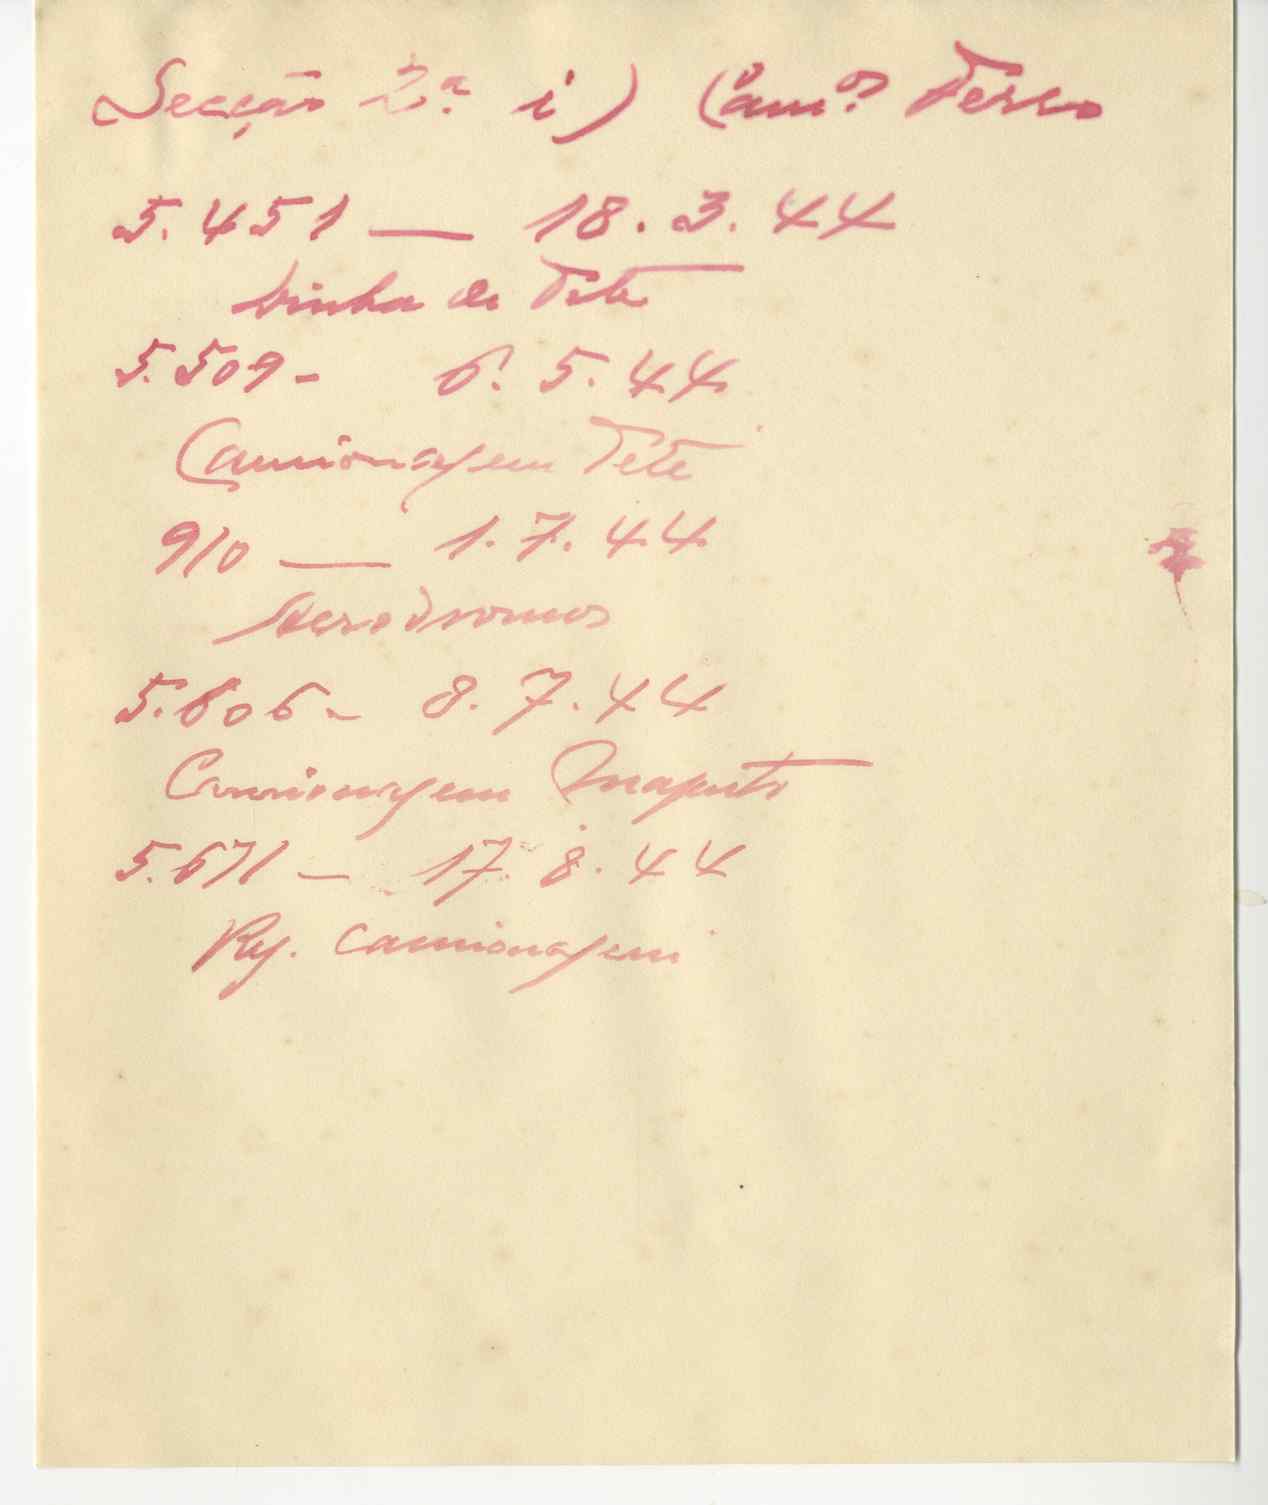 Secção 2ª i) Camºs Ferro
5.451 — 18.3.44
Linha de Tete
5.509 - 6.5.44
Camionagem Tete
910 — 1.7.44
Aerodromos
5.606 - 8.7.44
Camionagem Maputo
5.671 — 17.8.44
Reg. Camionagem